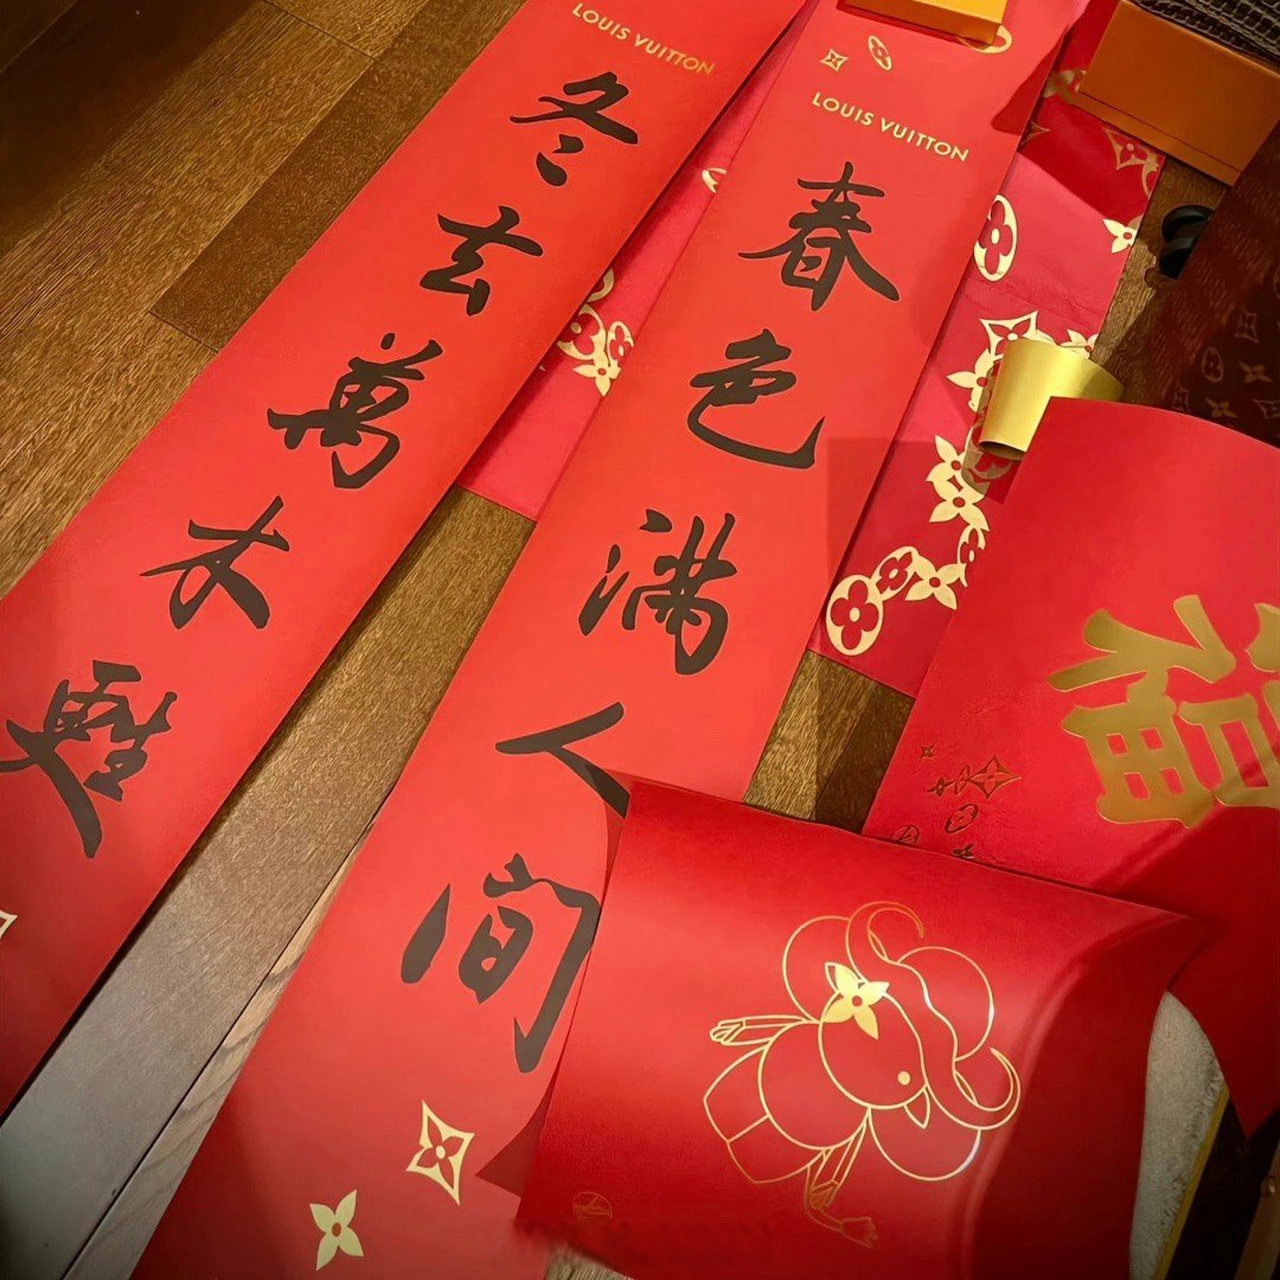 LOUIS VUITTON
冬去萬木甦
LOUIS VUITTON
春色满人间
福